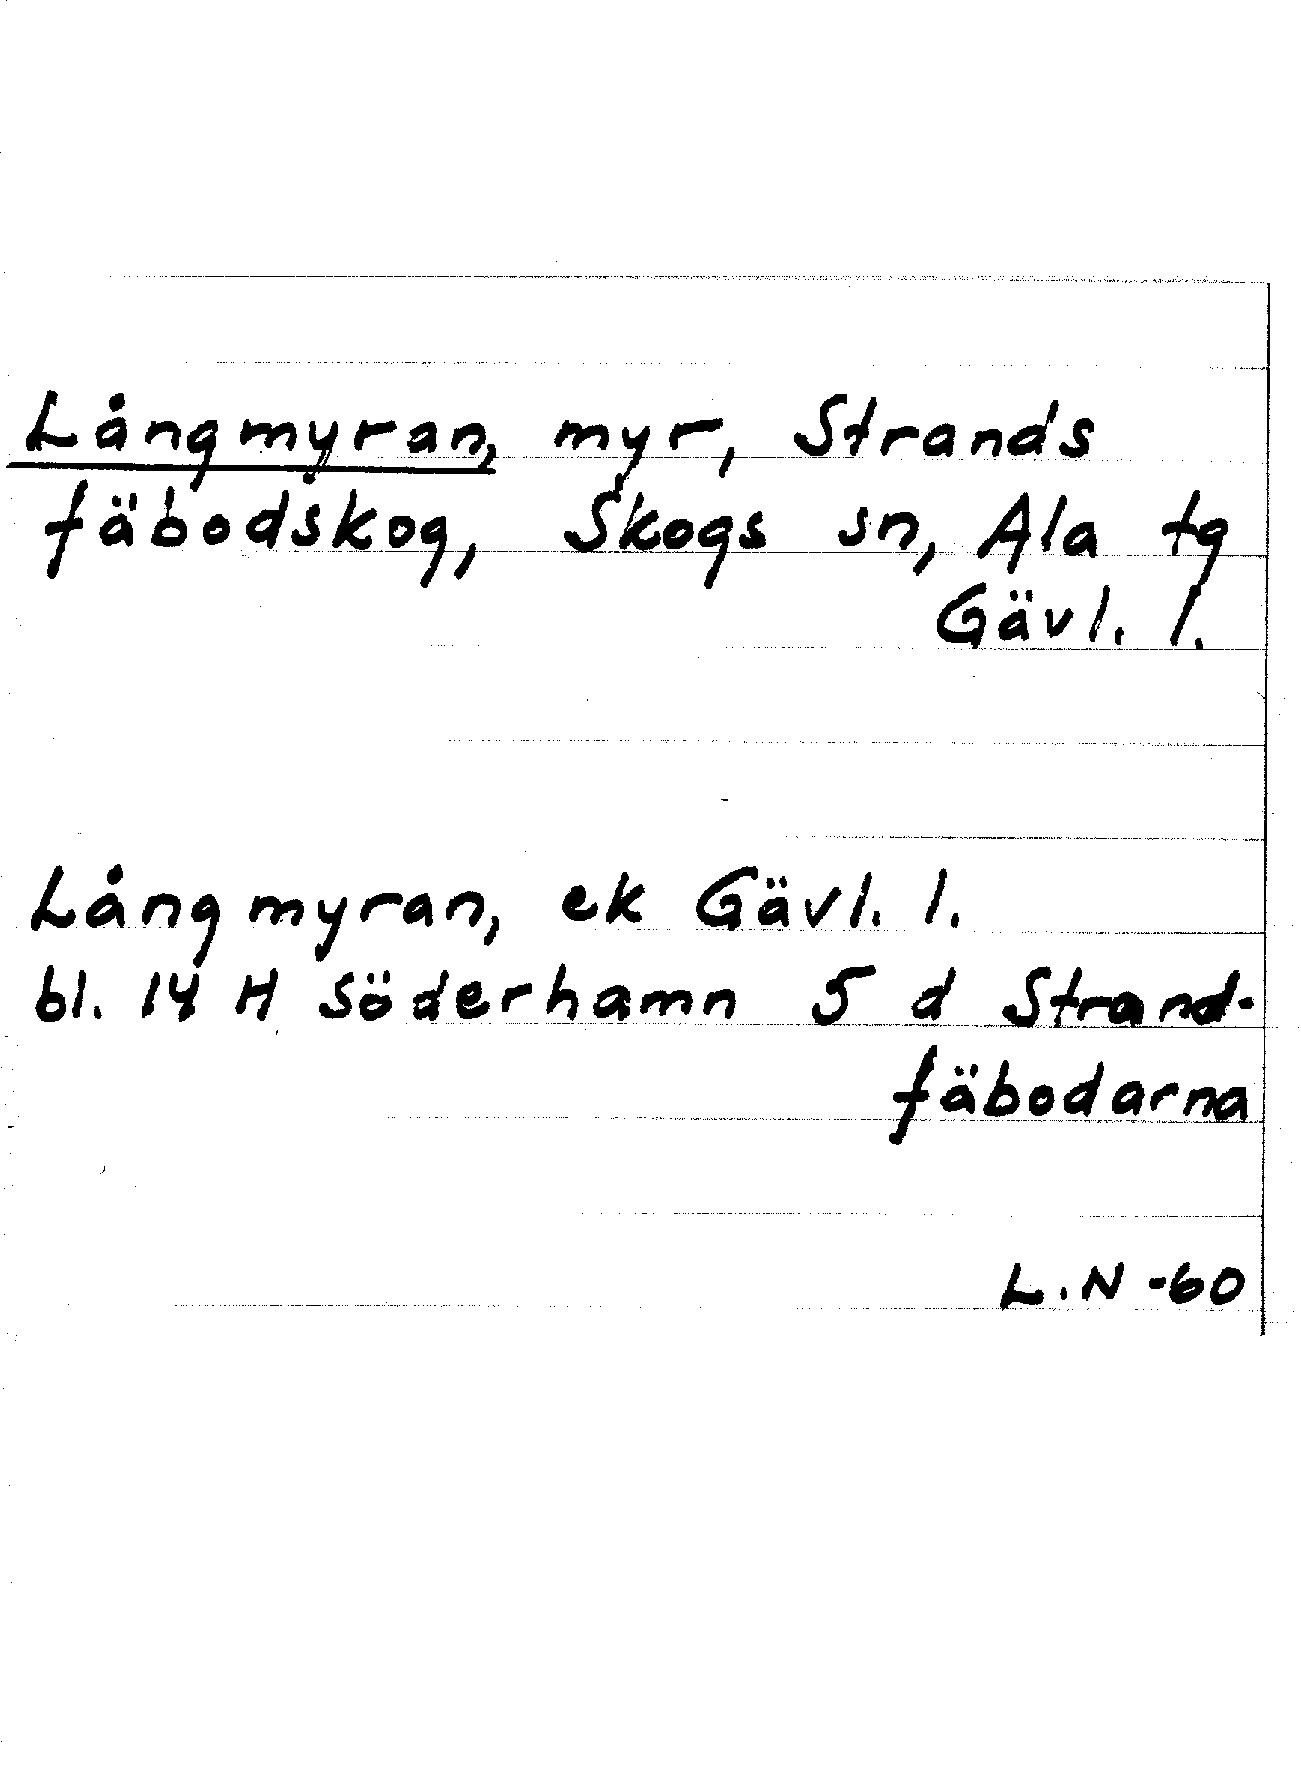 Långmyran, myr, Strands
fäbodskog, Skogs sn, Ala tg
Gävl. l.
Långmyran, ek Gävl. l.
bl. 14 H Söderhamn 5 d Strand-
fäbodarna
L.N -60